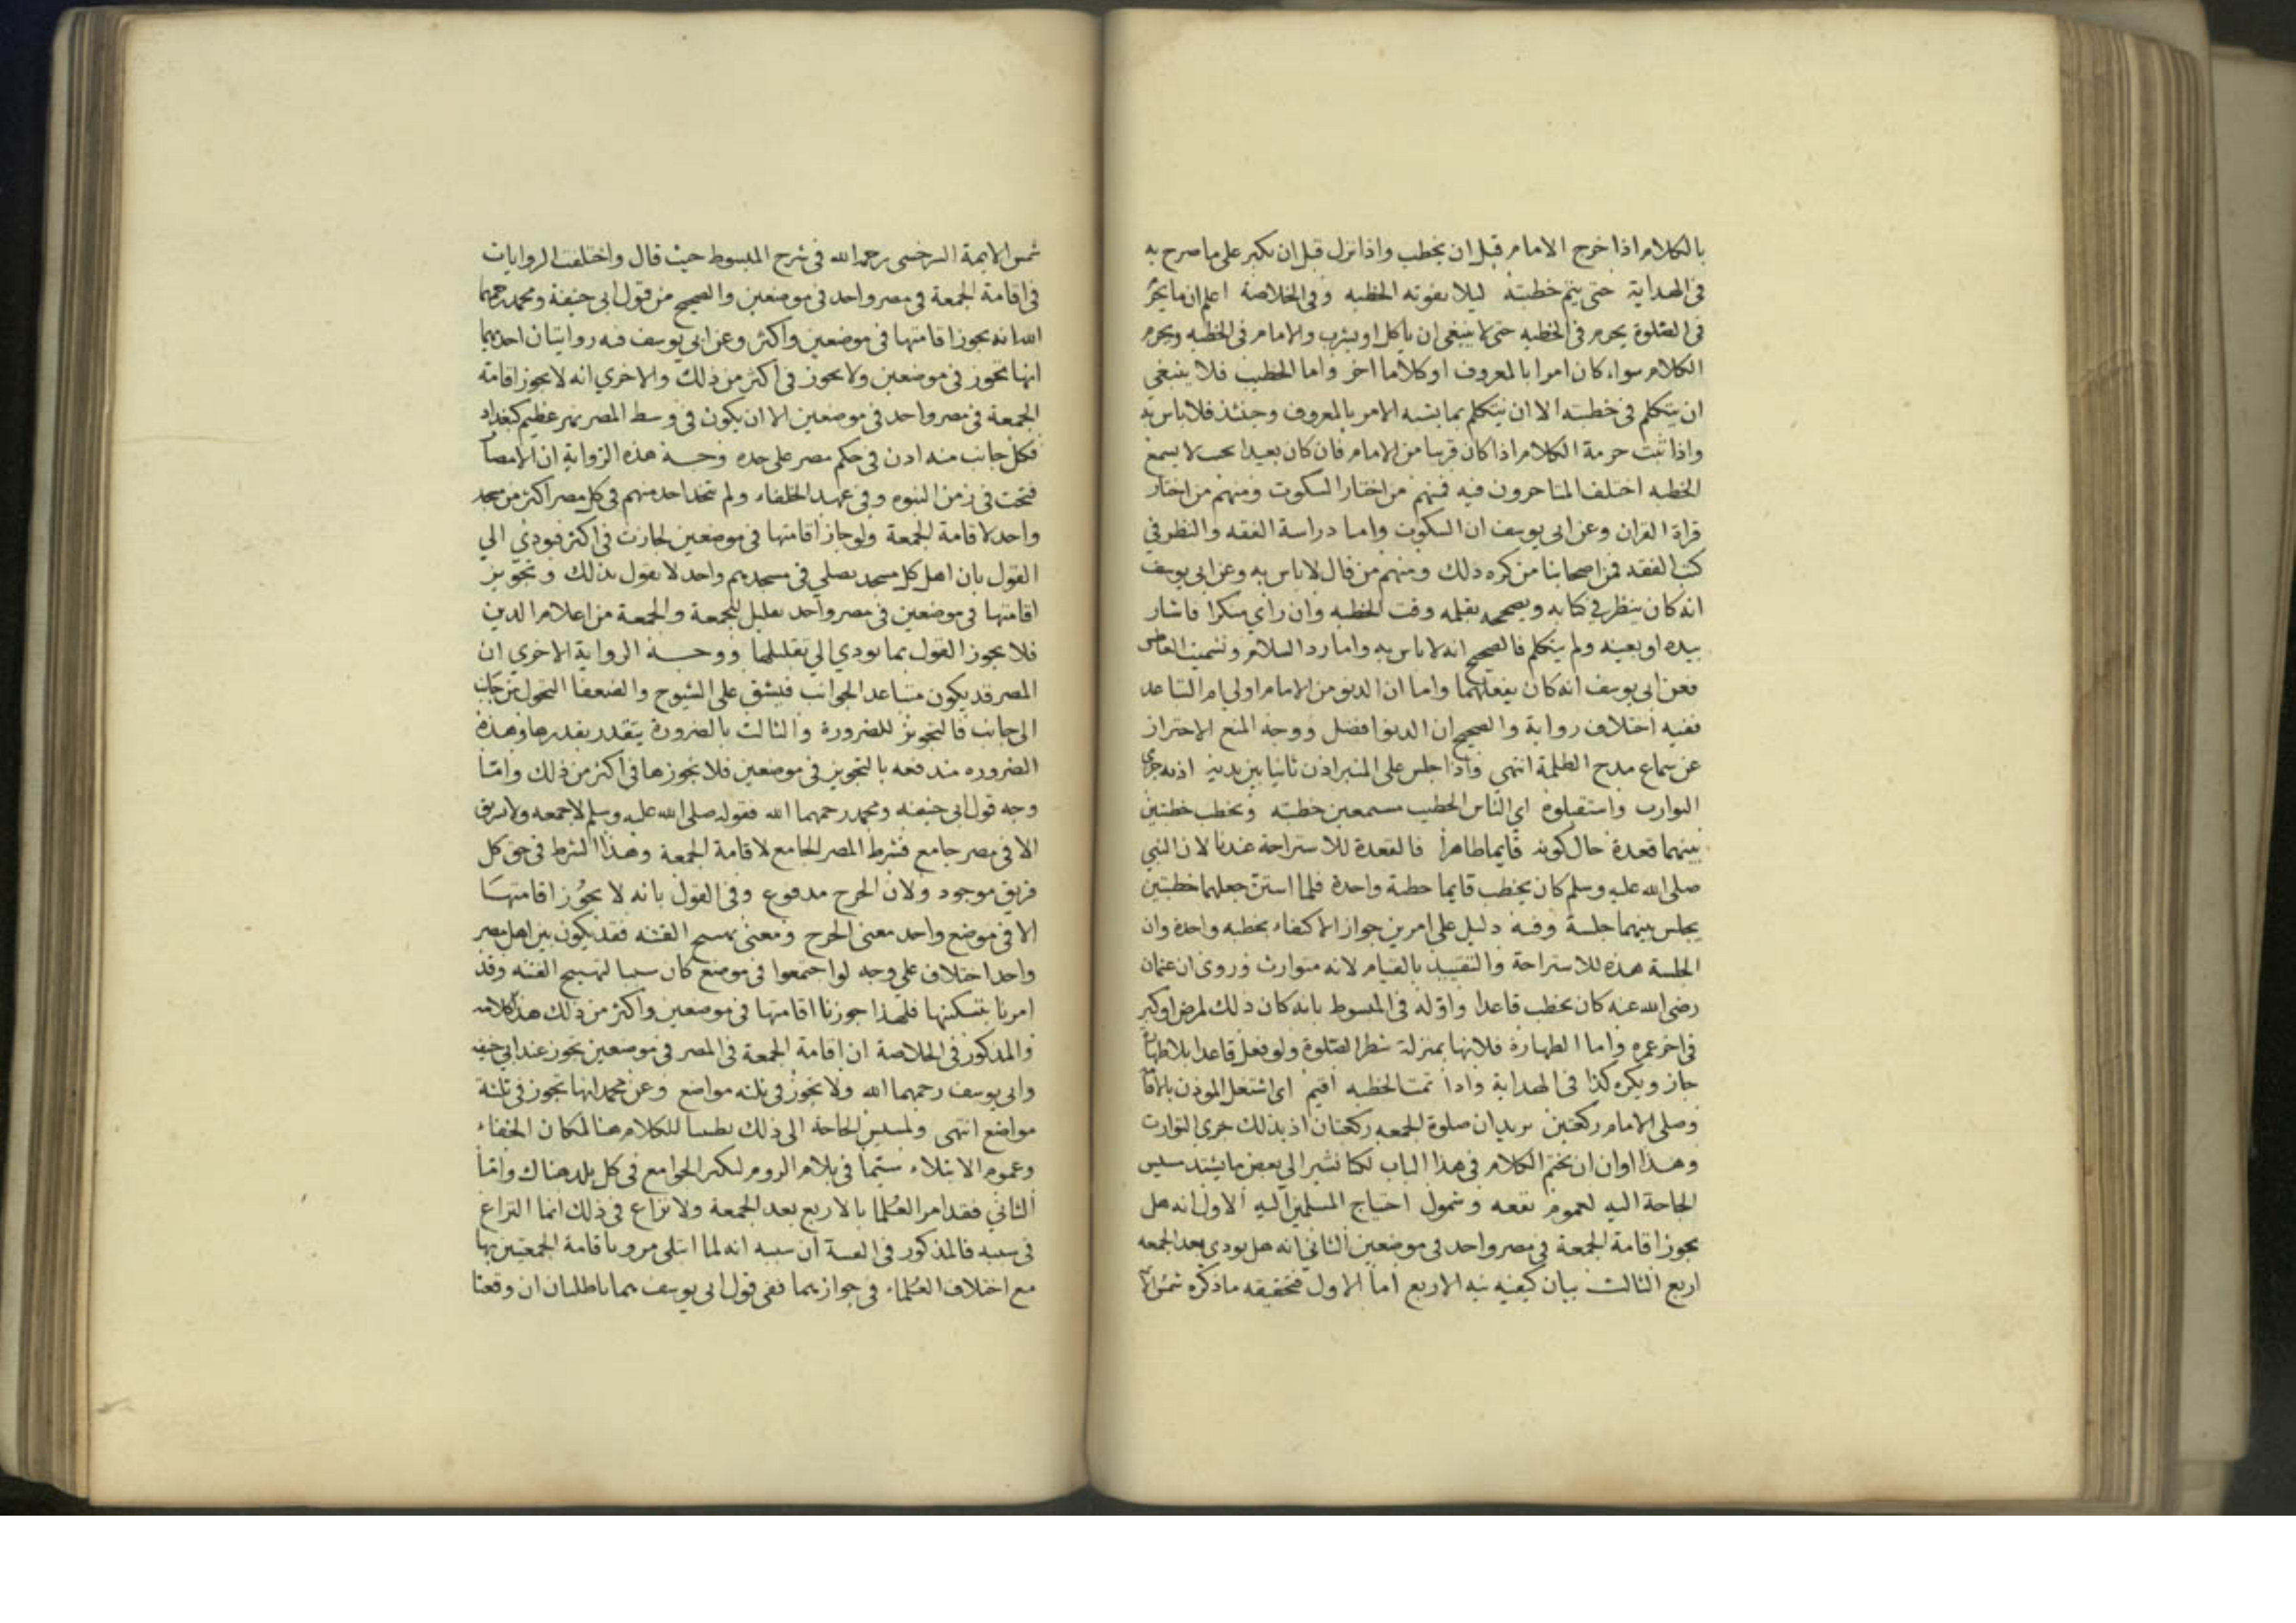 بالكلام اذا خرج الامام قبل ان يخطب واذا نزل قبل ان يكبر على ما صرح به
فى الهداية حتى يتم خطبته ليلا يفوته الخطبه وفى الخلاصة اعلم ان ما يحرم
فى الصلوة يحرم فى الخطبه حتى لا ينبغى ان ياكل او يشرب والامام فى الخطبه ويحرم
الكلام سواء كان امرا بالمعروف او كلاما اخر واما الخطيب فلا ينبغى
ان يتكلم فى خطبته الا ان يتكلم بما يشبه الامر بالمعروف وحينئذ فلا باس به
واذا ثبت حرمة الكلام اذا كان قريبا من الامام فان كان بعيدا بحيث لا يسمع
الخطبه اختلف المتاخرون فيه فمنهم من اختار السكوت ومنهم من اختار
قراة القران وعن ابى يوسف ان السكوت واما دراسة الفقه والنظر في
كتب الفقه فمن اصحابنا من كره ذلك ومنهم من قال لا باس به وعن ابى يوسف
انه كان ينظر في كتابه ويصححه بقلمه وقت الخطبه وان راي منكرا فاشار
بيده او بعينه ولم يتكلم فالصحيح انه لا باس به واما رد السلام وتشميت العاطس
فعن ابى يوسف انه كان يفعلهما واما ان الدنو من الامام اولي ام التباعد
ففيه اختلاف رواية والصحيح ان الدنو افضل ووجه المنع الاحتراز
عن سماع مدح الظلمة انتهي واذا جلس على المنبر اذن ثانيا بين يديه اذ به جرى
التوارث واستقبلوه اي الناس الخطيب مستمعين خطبته ويخطب خطبتين
بينهما قعدة حال كونه قايما طاهرا فالقعدة للاستراحة عندنا لان النبي
صلى الله عليه وسلم كان يخطب قايما خطبة واحدة فلما اسن جعلهما خطبتين
يجلس بينهما جلسة وفيه دليل على امرين جواز الاكتفاء بخطبه واحدة وان
الجلسة هذه للاستراحة والتقييد بالقيام لانه متوارث وروى ان عثمان
رضى الله عنه كان يخطب قاعدا واوله فى المبسوط بانه كان ذلك لمرض او كبر
فى اخر عمره واما الطهارة فلانها بمنزلة شطر الصلوة ولو فعل قاعدا بلا طهارة
جاز ويكره كذا فى الهداية واذا تمت الخطبه اقيم اى اشتغل الموذن بالاقا
وصلى الامام ركعتين يريد ان صلوة الجمعه ركعتان اذ بذلك جرى التوارث
وهذا اوان ان نختم الكلام فى هذا الباب لكنا نشير الي بعض ما يشتد مسيس
الحاجة اليه لعموم نفعه وشمول احتياج المسلمين اليه الاول انه هل
يجوز اقامة الجمعة فى مصر واحد فى موضعين الثانى انه هل يودي بعد الجمعه
اربع الثالث بيان كيفيه نيه الاربع اما الاول فتحقيقه ما ذكره شمس الا
شمس الايمة السرخسى رحمه الله فى شرح المبسوط حيث قال واختلفت الروايات
فى اقامة الجمعة فى مصر واحد فى موضعين والصحيح من قول ابى حنيفة ومحمد رحمهما
الله انه يجوز اقامتها فى موضعين واكثر وعن ابى يوسف فيه روايتان احديهما
انها تجوز فى موضعين ولا يجوز فى اكثر من ذلك والاخري انه لا يجوز اقامة
الجمعة فى مصر واحد فى موضعين الا ان يكون فى وسط المصر نهر عظيم كبغداد
فكل جانب منه اذن فى حكم مصر على حده وجه هذه الرواية ان الامصا
فتحت فى زمن النبوه وفى عهد الخلفاء ولم يتخذ احد منهم فى كل مصر اكثر من مسجد
واحد لاقامة الجمعة ولو جاز اقامتها فى موضعين لجازت فى اكثر فيودي الي
القول بان اهل كل مسجد يصلي فى مسجدهم واحد لا يقول بذلك وتجويز
اقامتها فى موضعين فى مصر واحد تقليل للجمعة والجمعة من اعلام الدين
فلا يجوز القول بما يودي الي تقليلها ووجه الرواية الاخري ان
المصر قد يكون متباعد الجوانب فيشق على الشيوخ والضعفا التحول من جانب
الى جانب فالتجويز للضرورة والثابت بالضرورة يتقدر بقدرها وهذه
الضروره مندفعه بالتجويز فى موضعين فلا يجوزها فى اكثر من ذلك واما
وجه قول ابى حنيفه ومحمد رحمهما الله فقوله صلى الله عليه وسلم لا جمعه ولا تشريق
الا فى مصر جامع فشرط المصر الجامع لاقامة الجمعة وهذا الشرط فى حق كل
فريق موجود ولان الحرج مدفوع وفى القول بانه لا يجوز اقامتها
الا فى موضع واحد معنى الحرج ومعنى تهييج الفتنه فقد يكون بين اهل مصر
واحد اختلاف على وجه لو اجتمعوا فى موضع كان سببا لتهييج الفتنه وقد
امرنا بتسكينها فلهذا جوزنا اقامتها فى موضعين واكثر من ذلك هذا كلامه
والمذكور فى الخلاصة ان اقامة الجمعة فى المصر فى موضعين يجوز عند ابى حنيفه
وابى يوسف رحمهما الله ولا يجوز فى ثلثه مواضع وعن محمد انها تجوز فى ثلثة
مواضع انتهى ولمسيس الحاجة الى ذلك بسطنا الكلام هنا لمكان الخفاء
وعموم الابتلاء سيما فى بلاد الروم لكثر الجوامع فى كل بلد هناك واما
الثاني فقد امر العلما بالاربع بعد الجمعة ولا نزاع فى ذلك انما النزاع
فى سببه فالمذكور فى القنية ان سببه انه لما ابتلى مرو باقامة الجمعتين بها
مع اختلاف العلماء فى جوازهما ففى قول ابى يوسف هما باطلتان ان وقعتا